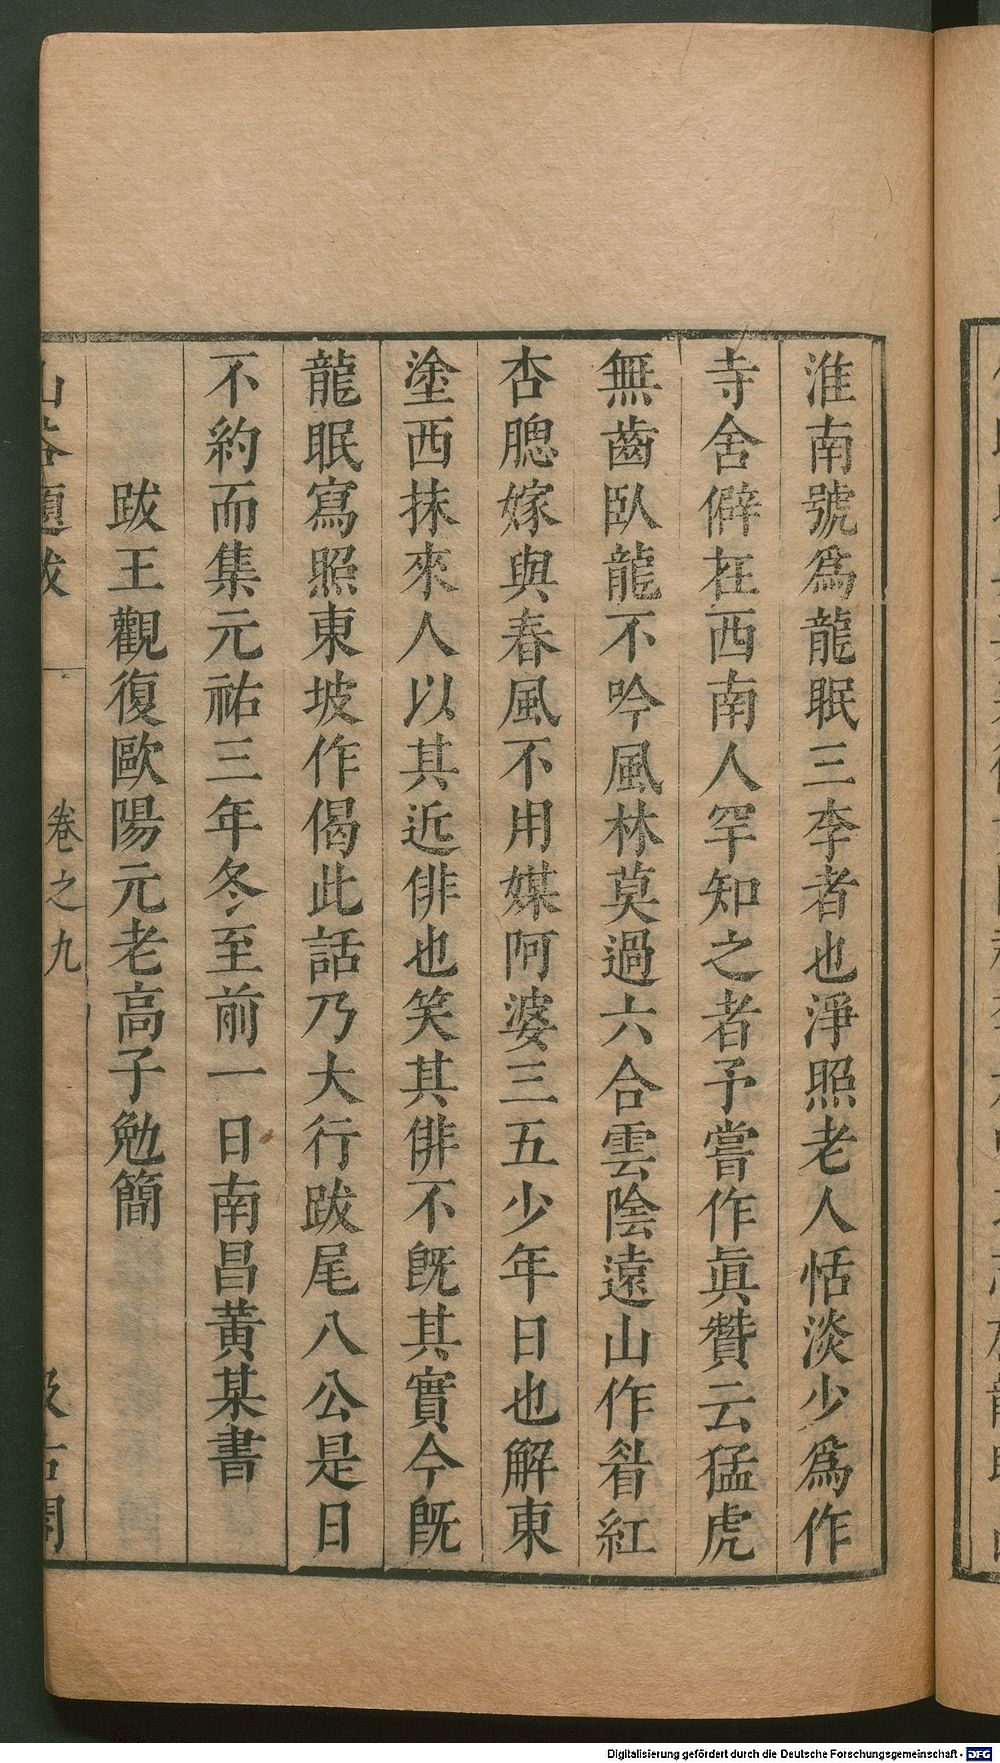 淮南號爲龍眠三李者也淨照老人恬淡少爲作
寺舍僻在西南人罕知之者予嘗作眞贊云猛虎
無齒臥龍不吟風林莫過六合雲陰遠山作眉紅
杏腮嫁與春風不用媒阿婆三五少年日也解東
塗西抹來人以其近俳也笑其俳不旣其實今旣
龍眠寫照東坡作偈此話乃大行跋尾八公是日
不約而集元祐三年冬至前一日南昌黃某書
跋王觀復歐陽元老高子勉簡
山谷題跋
卷之九
汲古閣
Digitalisierung gefördert durch die Deutsche Forschungsgemeinschaft - DFG